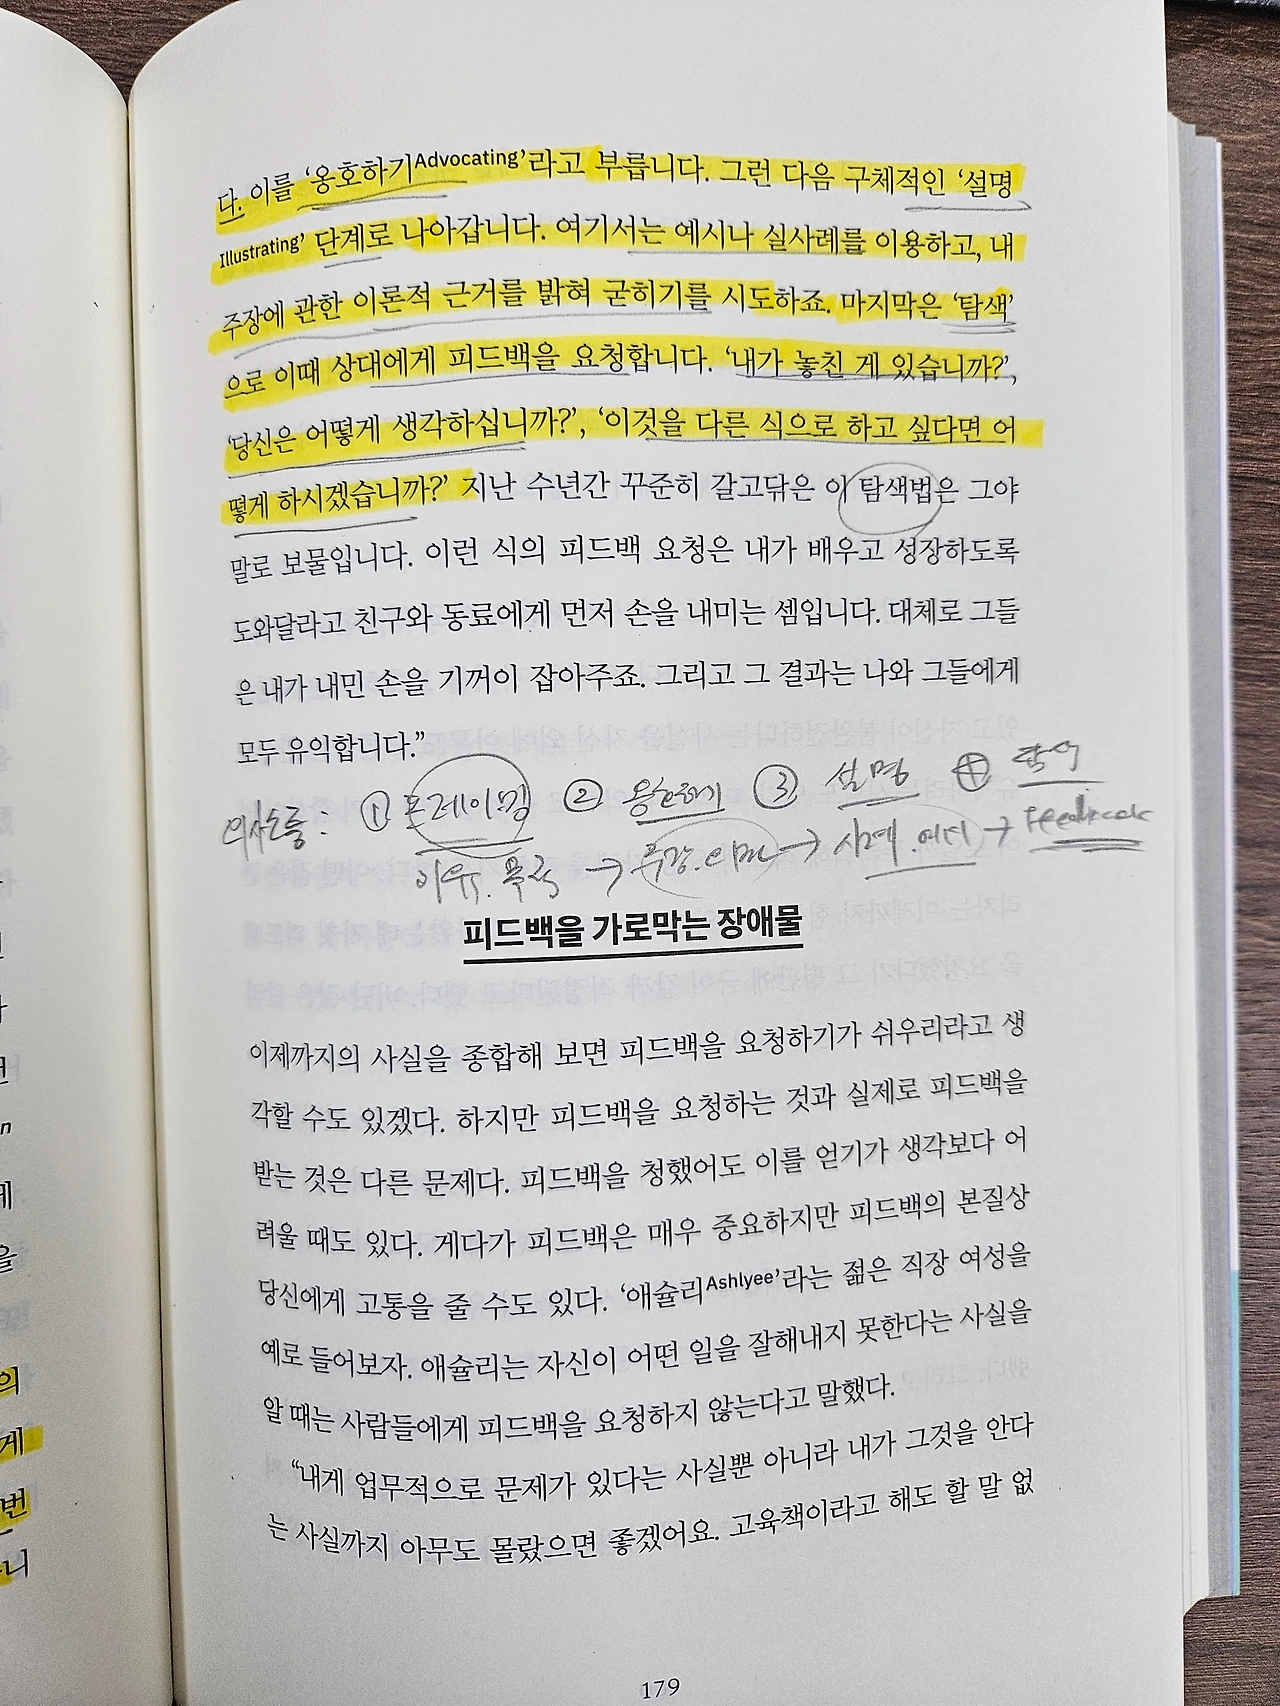 다. 이를 ‘옹호하기Advocating’라고 부릅니다. 그런 다음 구체적인 ‘설명
Illustrating’ 단계로 나아갑니다. 여기서는 예시나 실사례를 이용하고, 내
주장에 관한 이론적 근거를 밝혀 굳히기를 시도하죠. 마지막은 ‘탐색’
으로 이때 상대에게 피드백을 요청합니다. ‘내가 놓친 게 있습니까?’,
‘당신은 어떻게 생각하십니까?’, ‘이것을 다른 식으로 하고 싶다면 어
떻게 하시겠습니까?’ 지난 수년간 꾸준히 갈고닦은 이 탐색법은 그야
말로 보물입니다. 이런 식의 피드백 요청은 내가 배우고 성장하도록
도와달라고 친구와 동료에게 먼저 손을 내미는 셈입니다. 대체로 그들
은 내가 내민 손을 기꺼이 잡아주죠. 그리고 그 결과는 나와 그들에게
모두 유익합니다.”
의사소통 : ① 프레이밍 ② 옹호하기 ③ 설명 ④ 탐색
이유. 목적 → 주장. → 사례. 예시 → Feedback
피드백을 가로막는 장애물
이제까지의 사실을 종합해 보면 피드백을 요청하기가 쉬우리라고 생
각할 수도 있겠다. 하지만 피드백을 요청하는 것과 실제로 피드백을
받는 것은 다른 문제다. 피드백을 청했어도 이를 얻기가 생각보다 어
려울 때도 있다. 게다가 피드백은 매우 중요하지만 피드백의 본질상
당신에게 고통을 줄 수도 있다. ‘애슐리Ashlyee’라는 젊은 직장 여성을
예로 들어보자. 애슐리는 자신이 어떤 일을 잘해내지 못한다는 사실을
알 때는 사람들에게 피드백을 요청하지 않는다고 말했다.
“내게 업무적으로 문제가 있다는 사실뿐 아니라 내가 그것을 안다
는 사실까지 아무도 몰랐으면 좋겠어요. 고육책이라고 해도 할 말 없
179